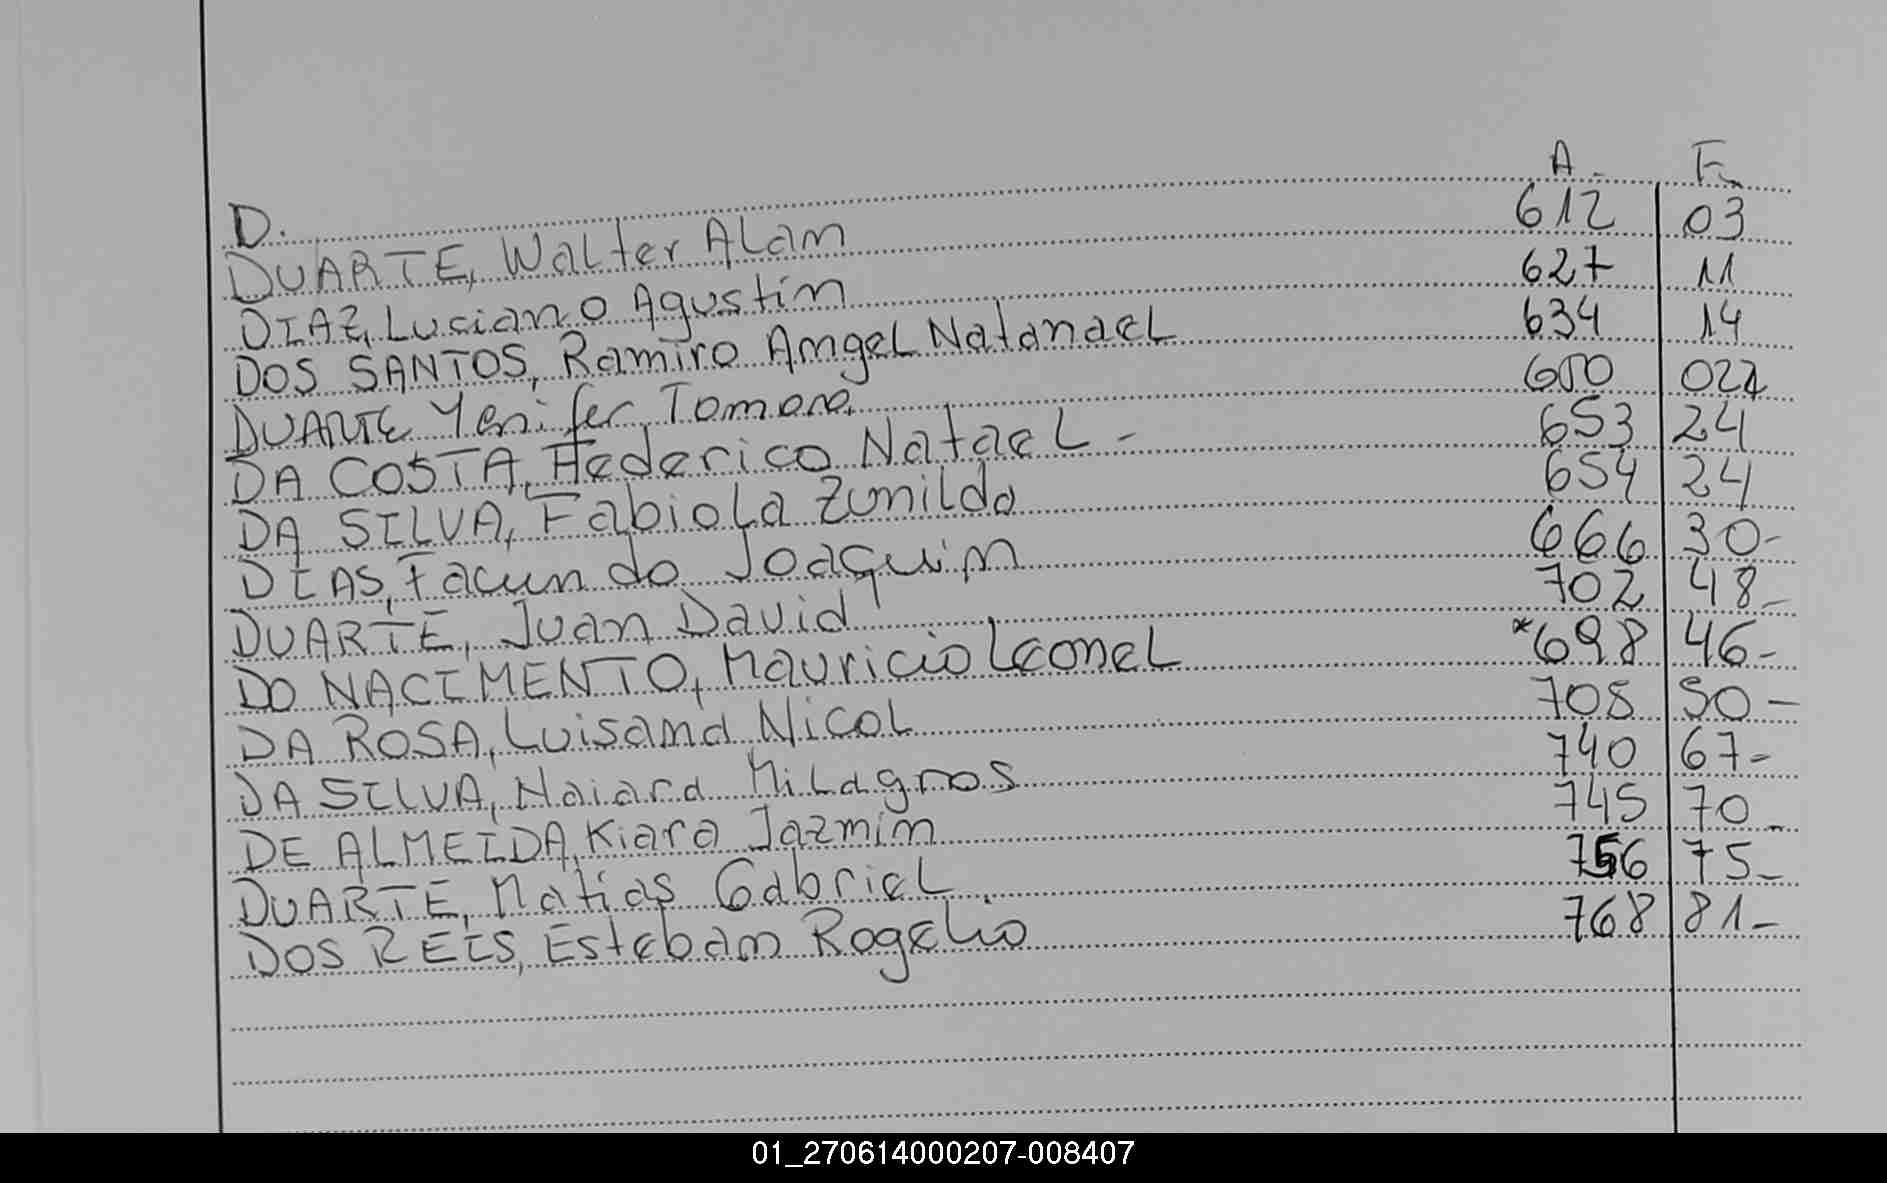 A. F.
D.
DUARTE, Walter Alam 612 03
DIAZ, Luciano Agustin 627 11
DOS SANTOS, Ramiro Amgel Natanael 634 14
DUARTE Yenifer Tamara. 650 022
DA COSTA, Hederico Natael - 653 24
DA SILVA, Fabiola Zunilda 654 24
DIAS, Facundo Joaquim 666 30-
DUARTE, Juan David 702 48-
DO NACIMENTO, Mauricio Leonel *698 46-
DA ROSA, Luisana Nicol 708 50-
DA SILVA, Naiara Milagros 740 67-
DE ALMEIDA, Kiara Jazmin 745 70-
DUARTE, Matias Gabriel 756 75-
DOS REIS, Esteban Rogelio 768 81-
01_270614000207-008407